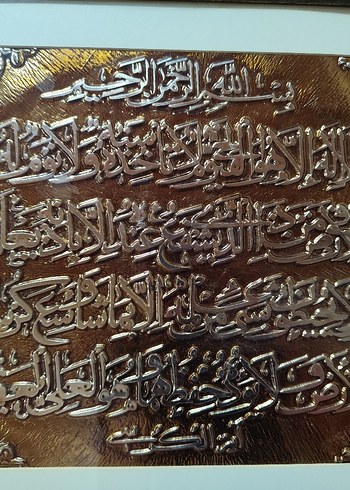 بسم الله الرحمن الرحيم
لا إله إلا هو الحي القيوم لا تأخذه سنة ولا نوم له
من ذا الذي يشفع عنده إلا بإذنه يعلم
ولا يحيطون بشيء من علمه إلا بما شاء وسع كر
الأرض ولا يؤده حفظهما وهو العلي العظيم
آية الكرسي